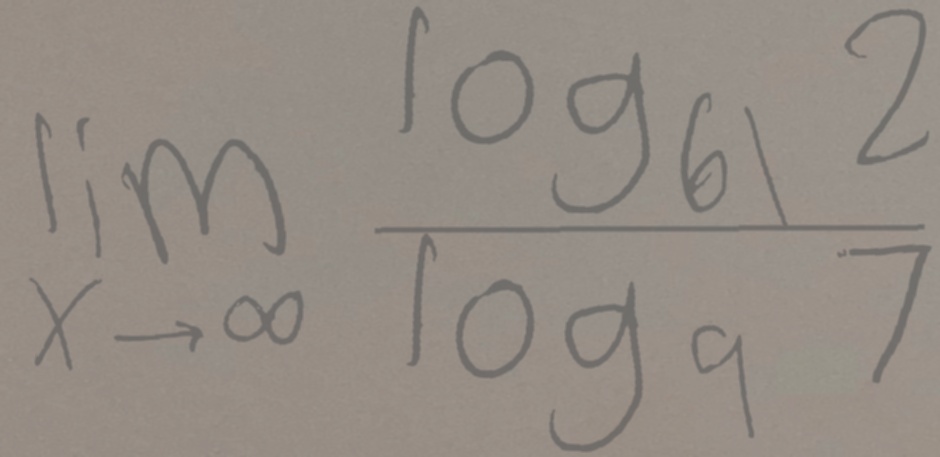 \lim_{x \to \infty} \frac{\log_{61} 2}{\log_{9} 7}